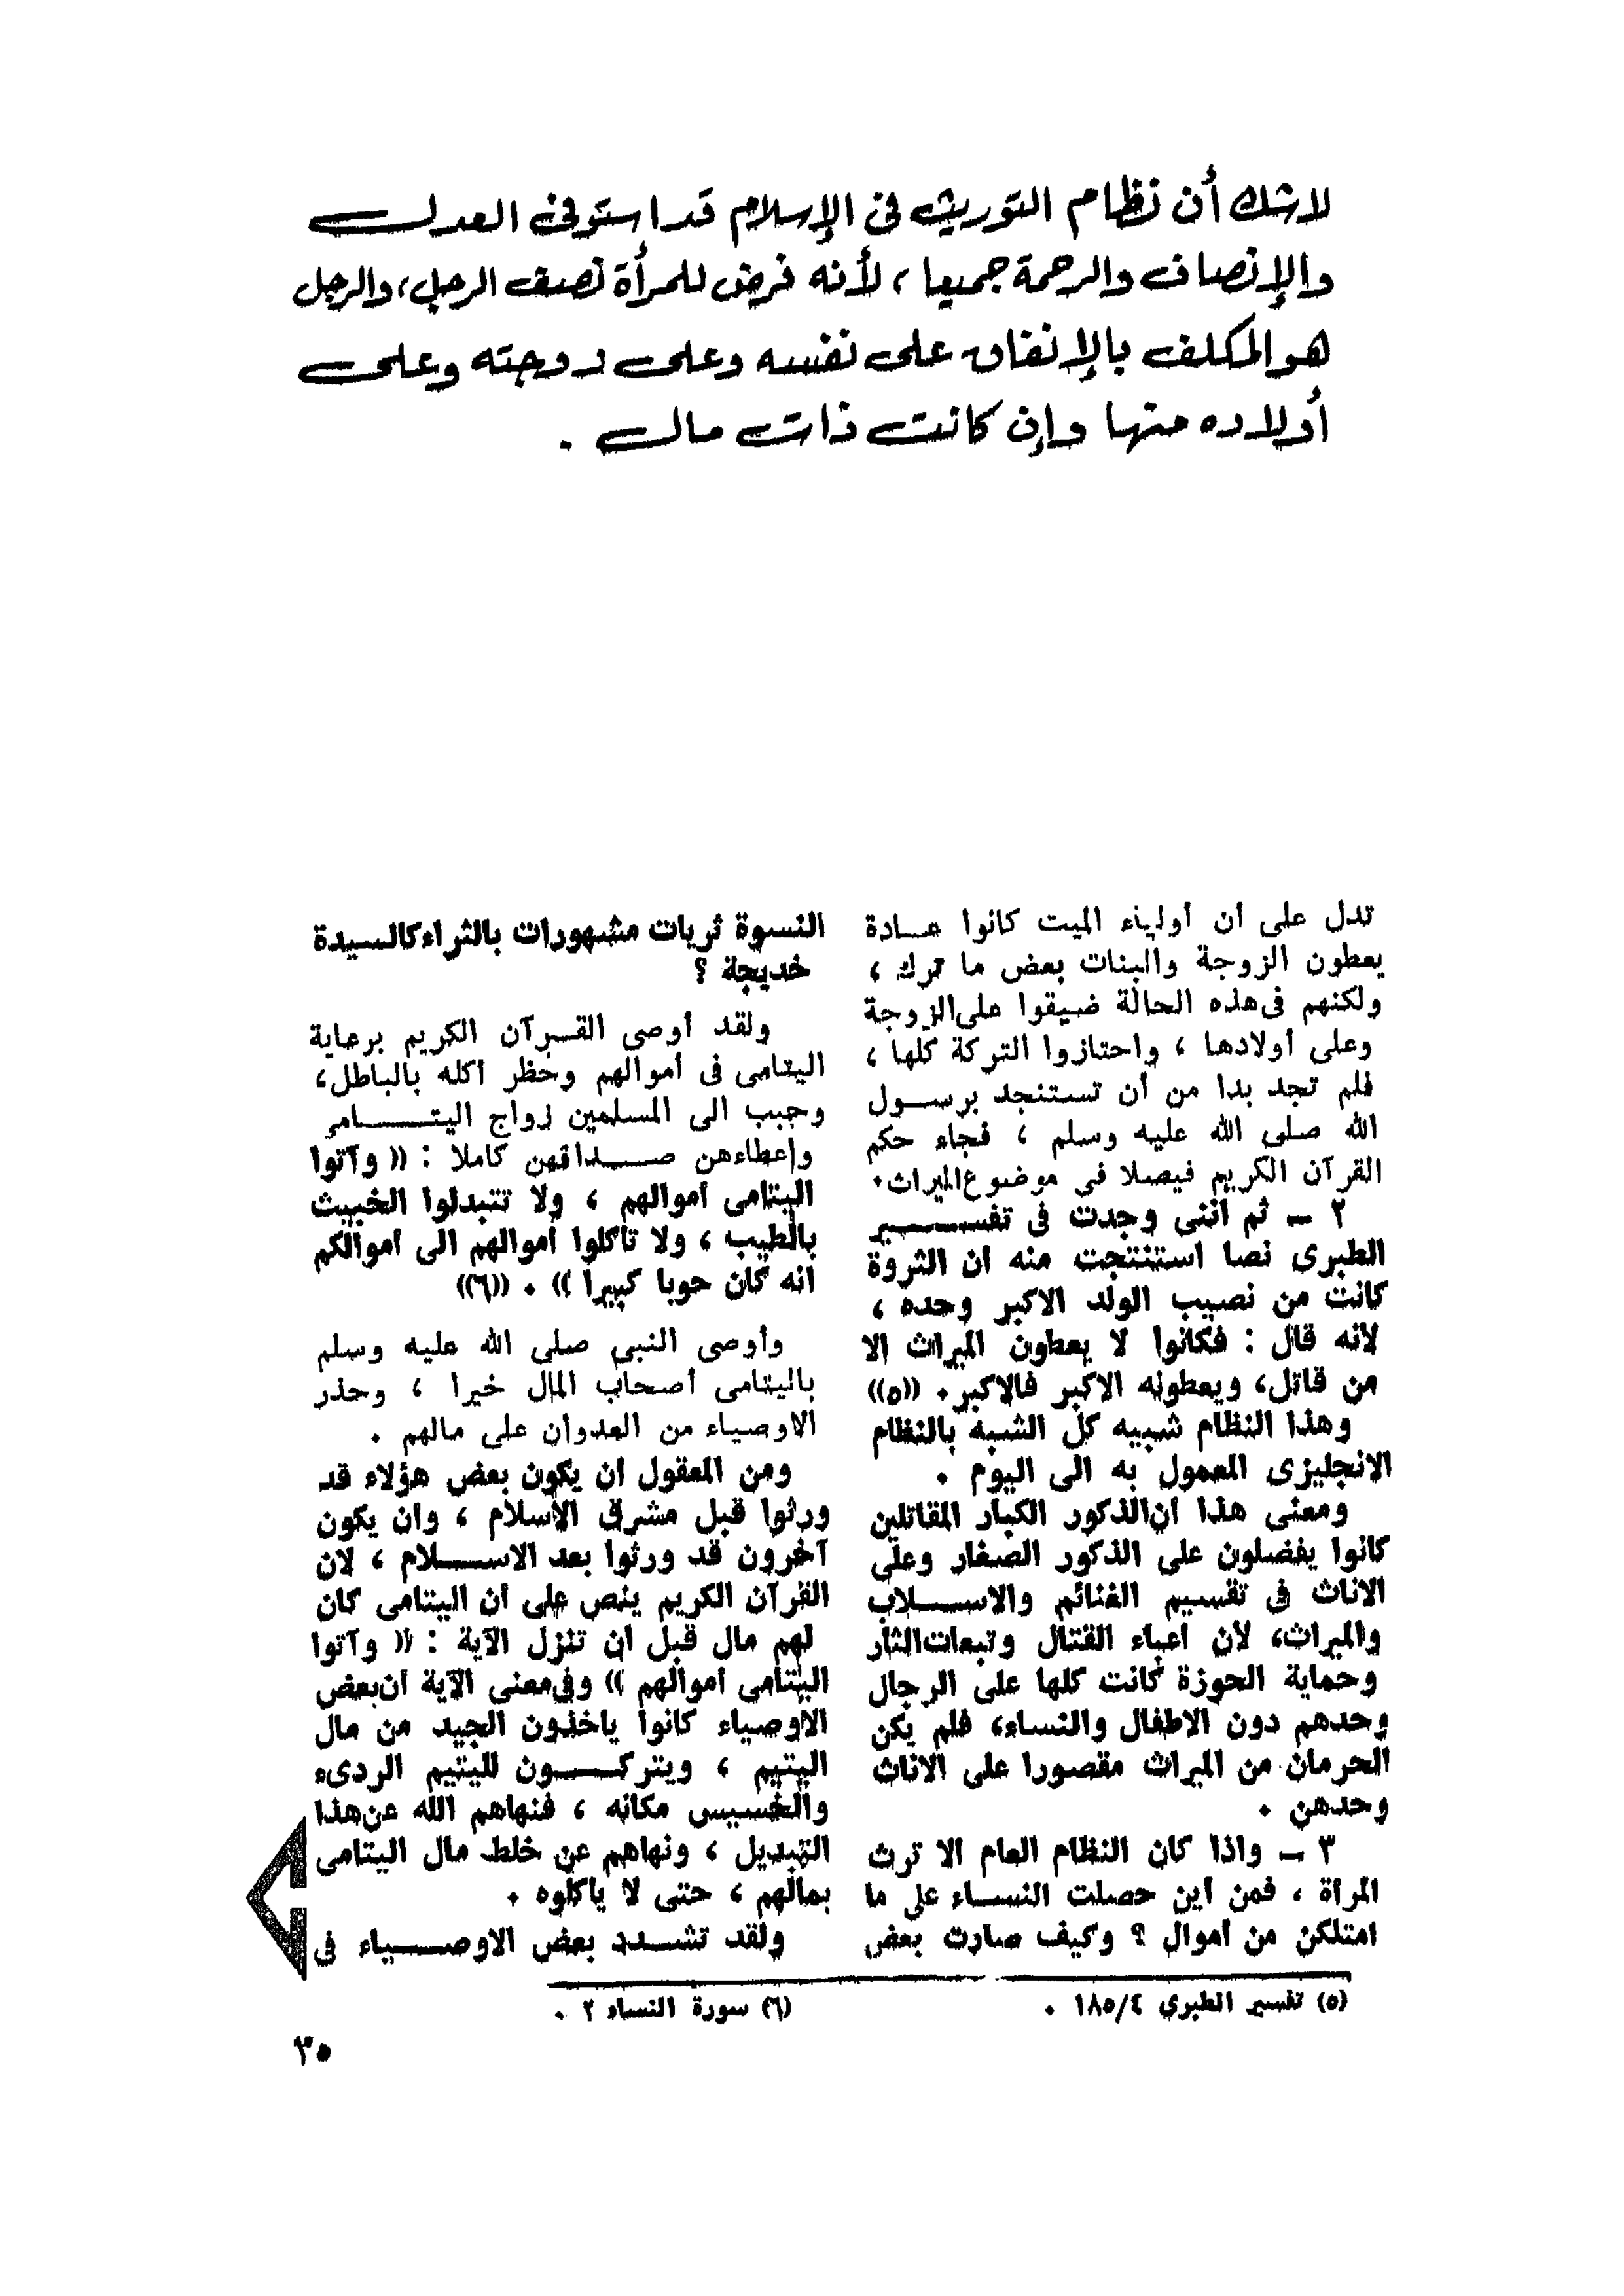 لا شك أن نظام التوريث في الإسلام قد استوفى العدل
والإنصاف والرحمة جميعا ، لأنه فرض للمرأة نصف الرجل ، والرجل
هو المكلف بالإنفاق على نفسه وعلى زوجته وعلى
أولاده منها وإن كانت ذات مال .
تدل على أن أولياء الميت كانوا عادة
يعطون الزوجة والبنات بعض ما ترك ،
ولكنهم فى هذه الحالة ضيقوا على الزوجة
وعلى أولادها ، واحتازوا التركة كلها ،
فلم تجد بدا من أن تستنجد برسول
الله صلى الله عليه وسلم ، فجاء حكم
القرآن الكريم فيصلا فى موضوع الميراث .
٢ ــ ثم اننى وجدت فى تفسير
الطبرى نصا استنتجت منه ان الثروة
كانت من نصيب الولد الاكبر وحده ،
لانه قال : فكانوا لا يعطون الميراث الا
من قاتل ، ويعطونه الاكبر فالاكبر . ((٥))
وهذا النظام شبيه كل الشبه بالنظام
الانجليزى المعمول به الى اليوم .
ومعنى هذا ان الذكور الكبار المقاتلين
كانوا يفضلون على الذكور الصغار وعلى
الاناث فى تقسيم الغنائم والاسلاب
والميراث ، لان اعباء القتال وتبعات الثار
وحماية الحوزة كانت كلها على الرجال
وحدهم دون الاطفال والنساء ، فلم يكن
الحرمان من الميراث مقصورا على الاناث
وحدهن .
٣ ــ واذا كان النظام العام الا ترث
المرأة ، فمن أين حصلت النساء على ما
امتلكن من أموال ؟ وكيف صارت بعض
النسوة ثريات مشهورات بالثراء كالسيدة
خديجة ؟
ولقد أوصى القرآن الكريم برعاية
اليتامى فى أموالهم وحظر أكله بالباطل ،
وحبب الى المسلمين زواج اليتامى
وإعطاءهن صداقهن كاملا : (( وآتوا
اليتامى اموالهم ، ولا تتبدلوا الخبيث
بالطيب ، ولا تاكلوا أموالهم الى أموالكم
انه كان حوبا كبيرا )) . ((٦))
وأوصى النبى صلى الله عليه وسلم
باليتامى أصحاب المال خيرا ، وحذر
الاوصياء من العدوان على مالهم .
ومن المعقول ان يكون بعض هؤلاء قد
ورثوا قبل مشرق الاسلام ، وان يكون
آخرون قد ورثوا بعد الاسلام ، لان
القرآن الكريم ينص على ان اليتامى كان
لهم مال قبل ان تنزل الآية : (( وآتوا
اليتامى اموالهم )) وفى معنى الآية ان بعض
الاوصياء كانوا ياخذون الجيد من مال
اليتيم ، ويتركون لليتيم الردىء
والخسيس مكانه ، فنهاهم الله عن هذا
التبديل ، ونهاهم عن خلط مال اليتامى
بمالهم ، حتى لا ياكلوه .
ولقد تشدد بعض الاوصياء فى
(٥) تفسير الطبرى ١٨٥/٤ .
(٦) سورة النساء ٢ .
٣٥